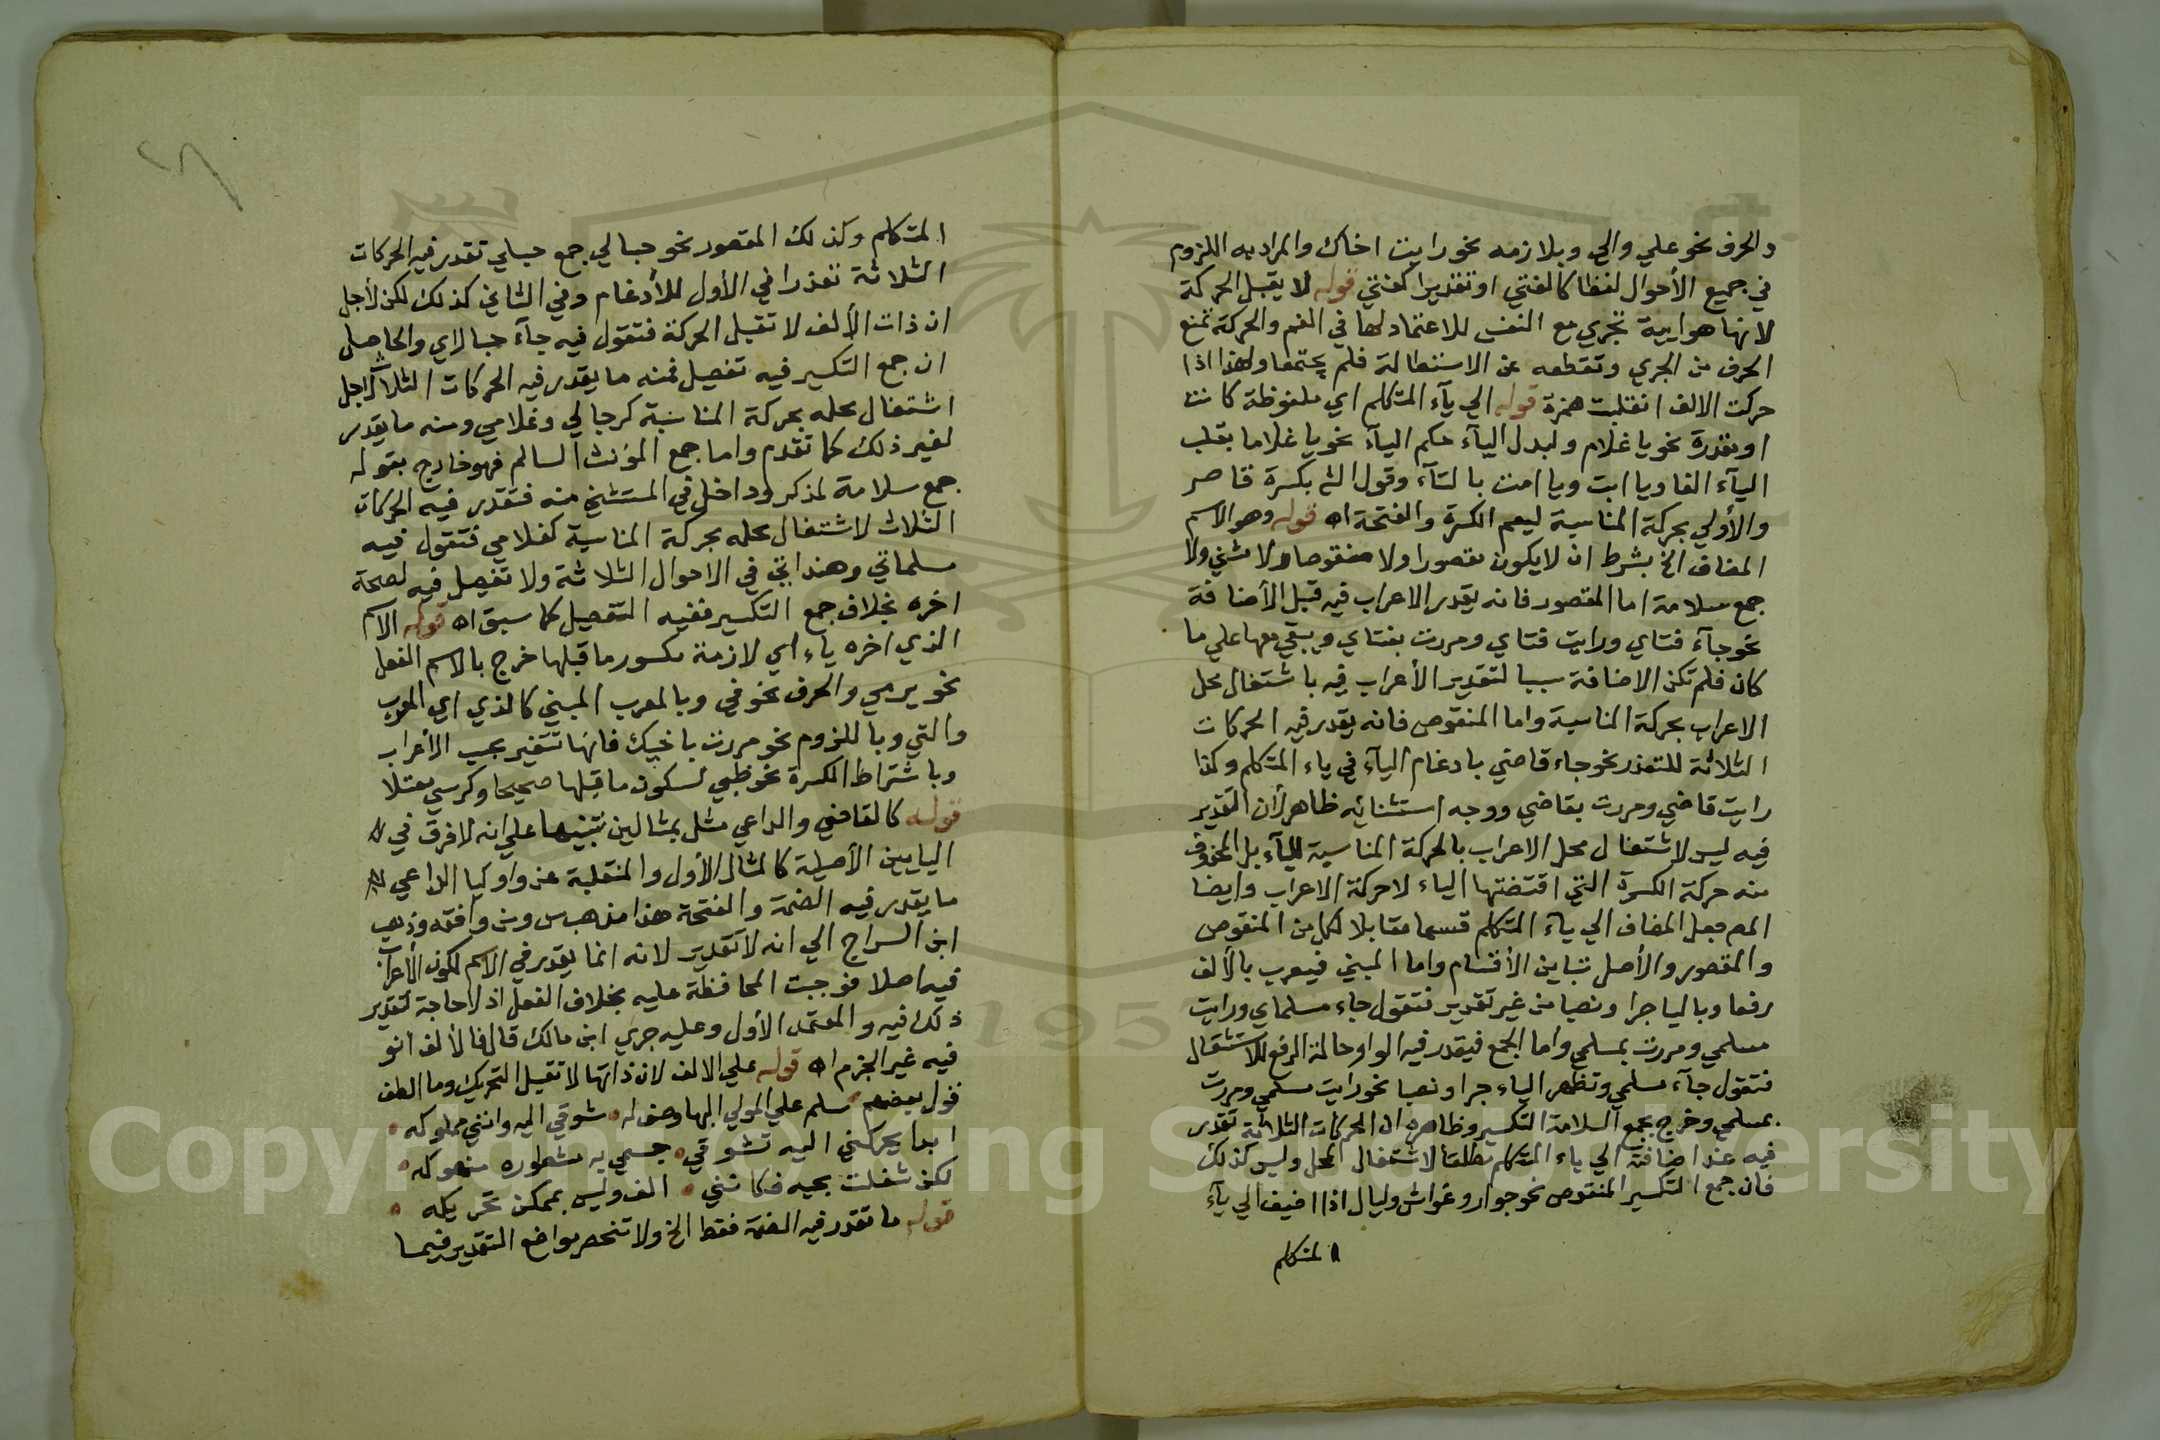 والحرف نحو علي والي وبلازمه نحو رايت اخاك والمراد به اللزوم
في جميع الأحوال لفظا كالفتي او تقديرا كفتي قوله لا يقبل الحركة
لانها هوايية تجري مع النفس للاعتماد لها في الفم والحركة تمنع
الحرف من الجري وتقطعه عن الاستطالة فلم يجتمعا ولهذا اذا
حركت الالف انقلبت همزة قوله الي يآء المتكلم اي ملفوظة كانت
او مقدرة نحو يا غلام ولبدل اليآء حكم اليآء نحو يا غلاما بقلب
اليآء الفا ويا ابت ويا امت بالتآء وقول الش بكسرة قاصر
والأولي بحركة المناسبة ليعم الكسرة والفتحة اه قوله وهو الاسم
المضاف الخ بشرط ان لا يكون مقصورا ولا منقوصا ولا مثني ولا
جمع سلامة اما المقصور فانه يقدر الاعراب فيه قبل الأضافة
نحو جآء فتاي ورايت فتاي ومررت بفتاي ويبقي معها علي ما
كان فلم تكن الاضافة سببا لتقدير الأعراب فيه باشتغال محل
الاعراب بحركة المناسبة واما المنقوص فانه يقدر فيه الحركات
الثلاثة للتعذر نحو جاء قاضي بادغام اليآء في ياء المتكلم وكذا
رايت قاضي ومررت بقاضي ووجه استثنائه ظاهر لأن التقدير
فيه ليس لاشتغال محل الاعراب بالحركة المناسبة لليآء بل المحذوف
منه حركة الكسرة التي اقتضتها الياء لا حركة الاعراب وايضا
المص جعل المضاف الي يآء المتكلم قسما مقابلا لكل من المنقوص
والمقصور والأصل تباين الأقسام واما المبني فيعرب بالألف
رفعا وباليا جرا ونصبا من غير تقدير فتقول جاء مسلماي ورايت
مسلمي ومررت بمسلمي واما الجمع فيقدر فيه الواو حالة الرفع للاستثقال
فتقول جآء مسلمي وتظهر الياء جرا ونصبا نحو رايت مسلمي ومررت
بمسلمي وخرج بجمع السلامة التكسير وظاهره ان الحركات الثلاثة تقدر
فيه عند اضافته الي ياء المتكلم مطلقا لاشتغال المحل وليس كذلك
فان جمع التكسير المنقوص نحو جوار وغواش وليال اذا اضيف الي يآء
المتكلم
المتكلم وكذلك المقصور نحو حبالي جمع حبلي تقدر فيه الحركات
الثلاثة تعذرا في الأول للأدغام وفي الثاني كذلك لكن لأجل
ان ذات الألف لا تقبل الحركة فتقول فيه جآء حبالاي والحاصل
ان جمع التكسير فيه تفصيل فمنه ما يقدر فيه الحركات الثلاث لأجل
اشتغال محله بحركة المناسبة كرجالي وغلامي ومنه ما يقدر
لغير ذلك كما تقدم واما جمع المؤنث السالم فهو خارج بقوله
جمع سلامة لمذكر وداخل في المستثني منه فتقدر فيه الحركات
الثلاث لاشتغال محله بحركة المناسبة كغلامي فتقول فيه
مسلماتي وهنداتي في الاحوال الثلاثة ولا تفصيل فيه لصحة
اخره بخلاف جمع التكسير ففيه التفصيل كما سبق اه قوله الاسم
الذي اخره ياء اي لازمة مكسور ما قبلها خرج بالاسم الفعل
نحو يرمي والحرف نحو في وبالمعرب المبني كالذي اي المعرب
والتي وباللزوم نحو مررت باخيك فانها تتغير بحسب الأعراب
وباشتراط الكسرة نحو ظبي لسكون ما قبلها صحيحا وكرسي معتلا
قوله كالقاضي والداعي مثل بمثالين تنبيها علي انه لا فرق في
اليايين الأصلية كالمثال الأول والمنقلبة عن واو كيا الداعي
ما يقدر فيه الضمة والفتحة هذا مذهب س ومن وافقه وذهب
ابن السراج الي انه لا تقدير لانه انما يقدر في الاسم لكون الأعراب
فيه اصلا فوجبت المحافظة عليه بخلاف الفعل اذ لا حاجة لتقدير
ذلك فيه والمعتمد الأول وعليه جري ابن مالك قال فالألف انو
فيه غير الجزم اه قوله علي الالف لان ذاتها لا تقبل التحريك وما الطف
قول بعضهم سلم علي المولي البها وصف له شوقي اليه وانني مملوكه
ابدا يحركني اليه تشوقي جسمي به مشطوره منهوكه
لكن شغلت بحبه فكانني الف وليس بممكن تحريكه
قوله ما تقدر فيه الضمة فقط الخ ولا تنحصر مواضع التقدير فيما
Copyright © King Saud University
1957